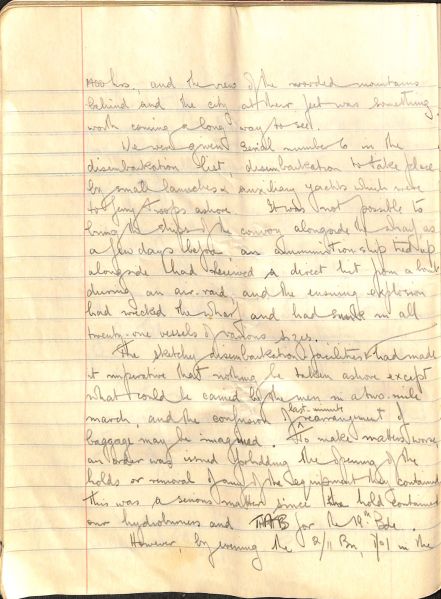 1400 hrs, and the view of the wooded mountains
behind and the city at their feet was something
worth coming a long way to see.
We were given serial number 6 in the
disembarkation list, disembarkation to take place
by small launches & auxiliary yachts which were
to ferry troops ashore. It was not possible to
bring the ships of the convoy alongside the wharf as
a few days before, an ammunition ship tied up
alongside had received a direct hit from a bomb
during an air-raid and the ensuing explosion
had wrecked the wharf and had sunk in all
twenty-one vessels of various sizes.
The sketchy disembarkation facilities had made
it imperative that nothing be taken ashore except
what could be carried by the men in a two-mile
march, and the confusion of last-minute rearrangement of
baggage may be imagined. To make matters worse
an order was issued forbidding the opening of the
holds or removal of any of the equipment they contained
this was a serious matter since the hold contained
our hydrohumers and TAB for the 19th Bde.
However, by evening the 2/11 Bn, in the